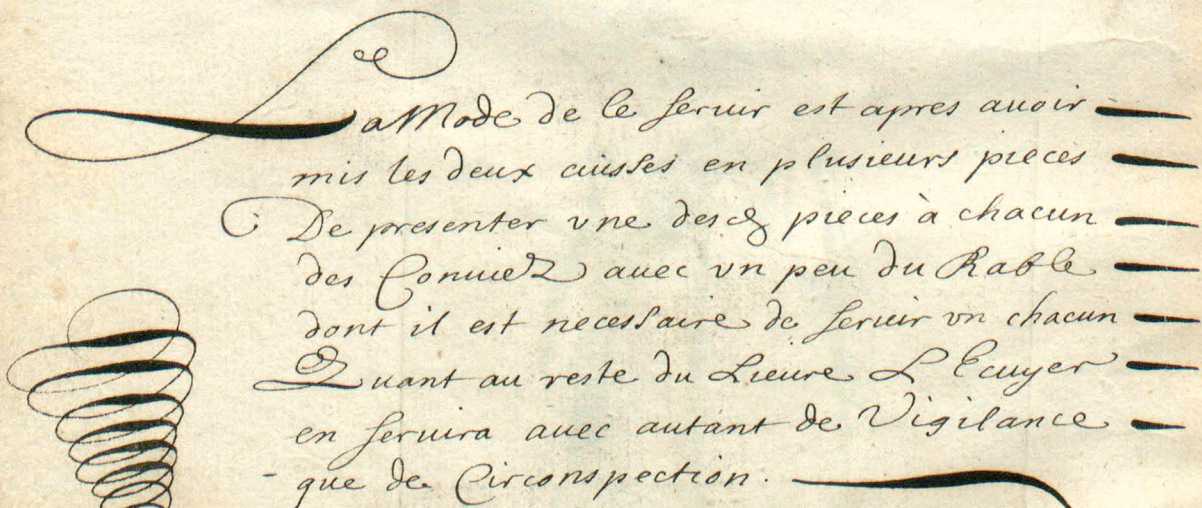 La Mode de le seruir est apres auoir
mis les deux cuisses en plusieurs pieces
De presenter vne desd pieces à chacun
des Conuiez auec vn peu du Rable
dont il est necessaire de seruir vn chacun
Quant au reste du Lieure L'Ecuyer
en seruira auec autant de Vigilance
que de Circonspection.